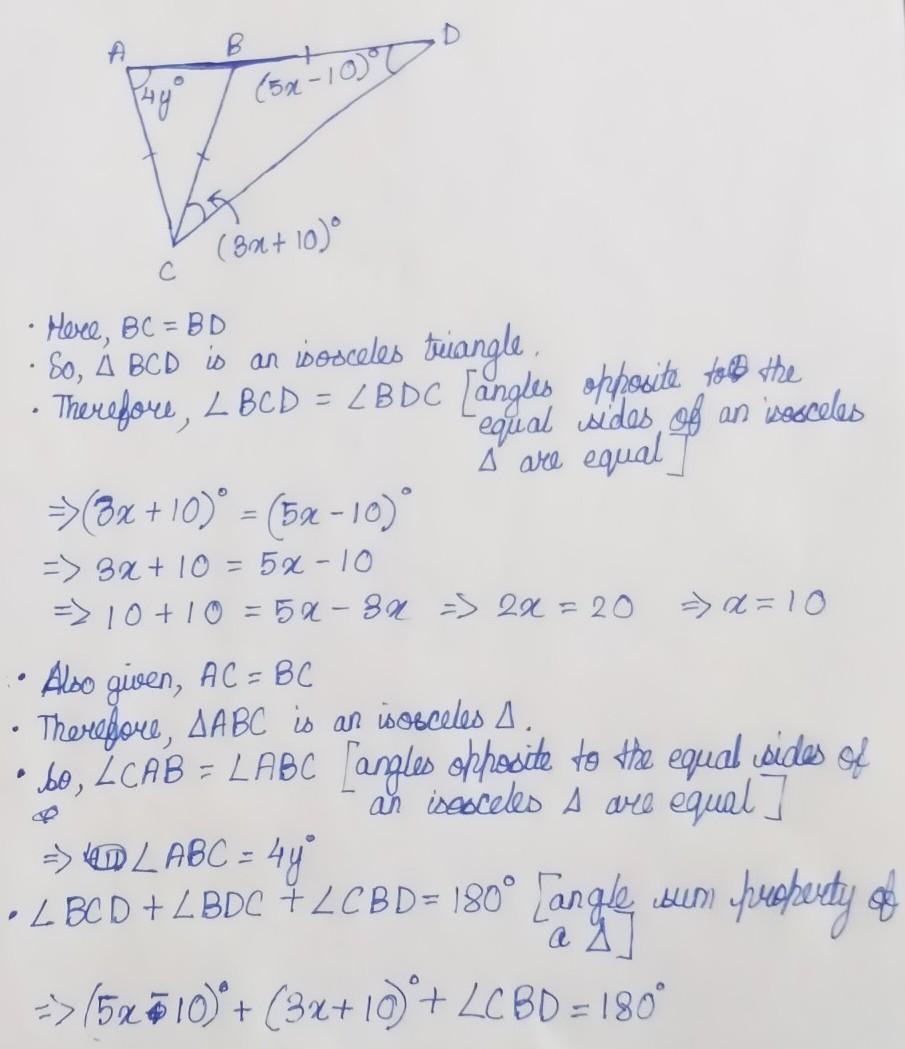 A B D
4y° (5x-10)°
(3x+10)°
C
· Here, BC = BD
· So, Δ BCD is an isosceles triangle.
· Therefore, ∠BCD = ∠BDC [angles opposite to the
equal sides of an isosceles
Δ are equal]
⇒(3x+10)° = (5x-10)°
⇒ 3x+10 = 5x-10
⇒ 10+10 = 5x-3x ⇒ 2x = 20 ⇒ x = 10
· Also given, AC = BC
· Therefore, ΔABC is an isosceles Δ.
· So, ∠CAB = ∠ABC [angles opposite to the equal sides of
an isosceles Δ are equal]
⇒ ∠ABC = 4y°
· ∠BCD + ∠BDC + ∠CBD = 180° [angle sum property of
a Δ]
⇒(5x-10)° + (3x+10)° + ∠CBD = 180°